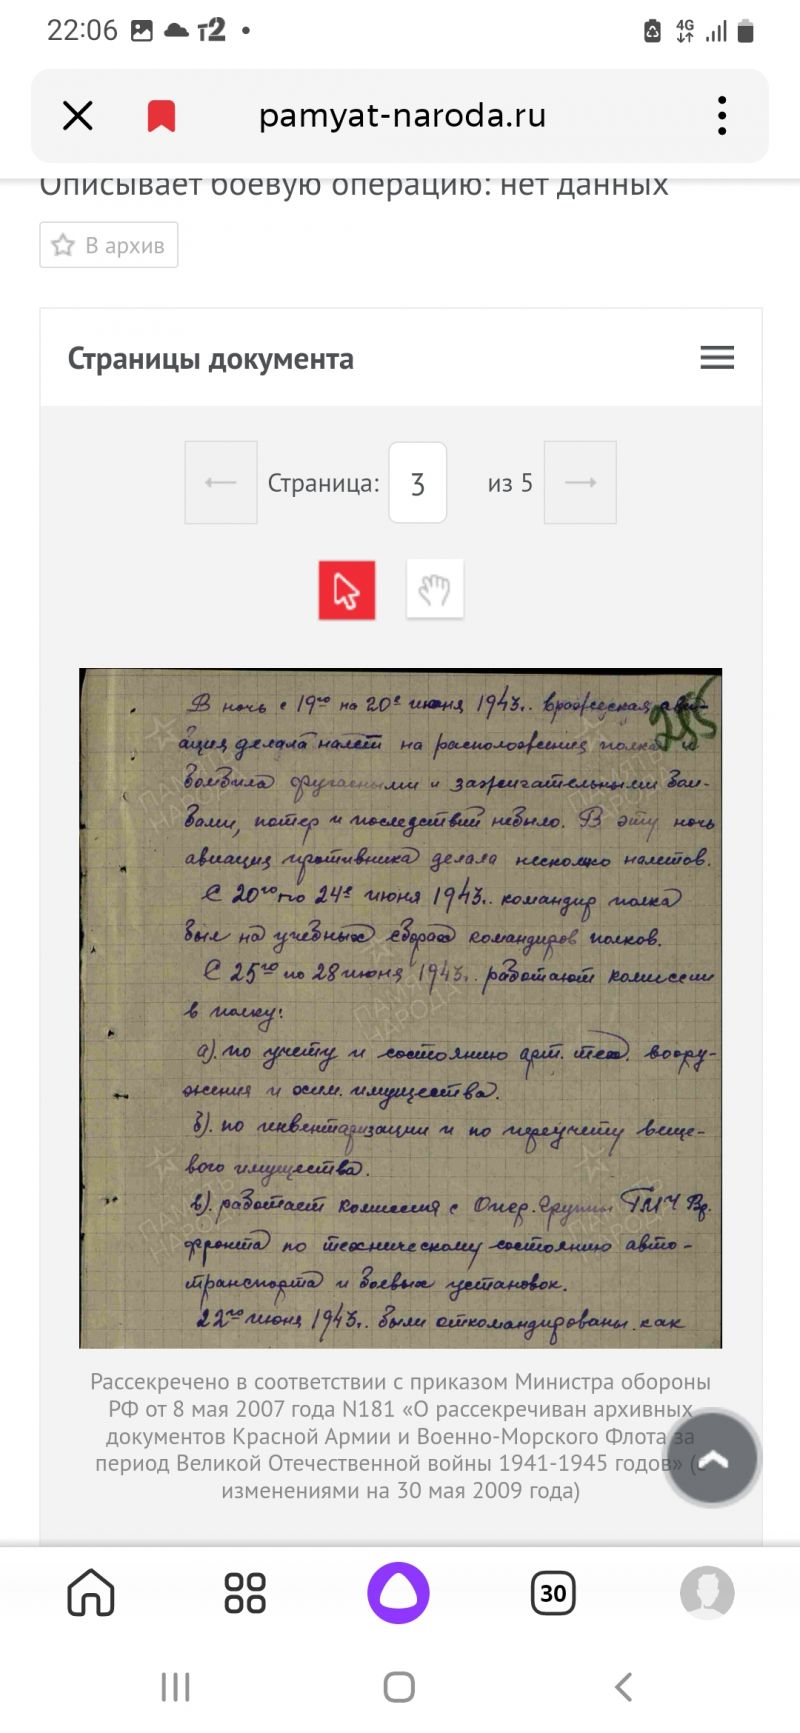 22:06 т2 4G
pamyat-naroda.ru
Описывает боевую операцию: нет данных
В архив
Страницы документа
Страница: 3 из 5
255
В ночь с 19го на 20е июня 1943г. вражеская ави-
ация делала налет на расположения полка и
бомбила фугасными и зажигательными бом-
бами, потер и последствий небыло. В эту ночь
авиация противника делала несколько налетов.
С 20го по 24е июня 1943г. командир полка
был на учебных сборах командиров полков.
С 25го по 28 июня 1943г. работают комиссии
в полку:
а). по учету и состоянию арт. тех. воору-
жения и хим. имущества.
б). по инвентаризации и по переучету веще-
вого имущества.
в). работает комиссия с Опер. Группы ГМЧ Вр.
фронта по техническому состоянию авто-
транспорта и боевых установок.
22го июня 1943г. были откомандированы как
ПАМЯТЬ НАРОДА
Рассекречено в соответствии с приказом Министра обороны
РФ от 8 мая 2007 года N181 «О рассекречиван архивных
документов Красной Армии и Военно-Морского Флота за
период Великой Отечественной войны 1941-1945 годов» (с
изменениями на 30 мая 2009 года)
30